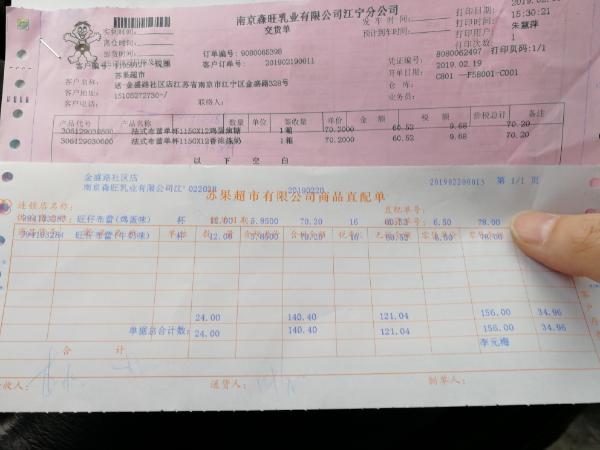 南京森旺乳业有限公司江宁分公司
交货单
打印日期: 2019.02
打印时间: 15:30:21
打印用户: 朱慧萍
打印页码:1/1
发车时间:
预计到车时间:
订单编号: 9080065398
客户订单号: 201902190011
凭证编号: 8080062497
开单日期: 2019.02.19
仓 库: C801
业务员:
苏果超市
客户名称:
客户地址:
送:金盛路社区店江苏省南京市江宁区金盛路328号
客户电话: 15105272730-/
联络人:
产品代号 产品名称 数量 单位 单价 金额 税额 价税总计 备注
306129030800 法式布蕾单杯1150X12鸡蛋焦糖 1箱 70.2000 60.52 9.68 70.20
1箱 70.2000 60.52 9.68 70.20
以 下 空 白
金盛路社区店
南京森旺乳业有限公司江' 022028 20190220 201902200015 第 1/1 页
苏果超市有限公司商品直配单
连锁店名称:
直配单号:
旺仔布蕾(鸡蛋味) 杯 12.00 5.8500 70.20 16 60.52 6.50 78.00
旺仔布蕾(牛奶味) 杯 12.00 5.8500 70.20 16 60.52 6.50 78.00
24.00 140.40 121.04 156.00 34.96
单据总合计数: 24.00 140.40 121.04 156.00 34.96
合 计 李元梅
收人: 送货人: 制单人: